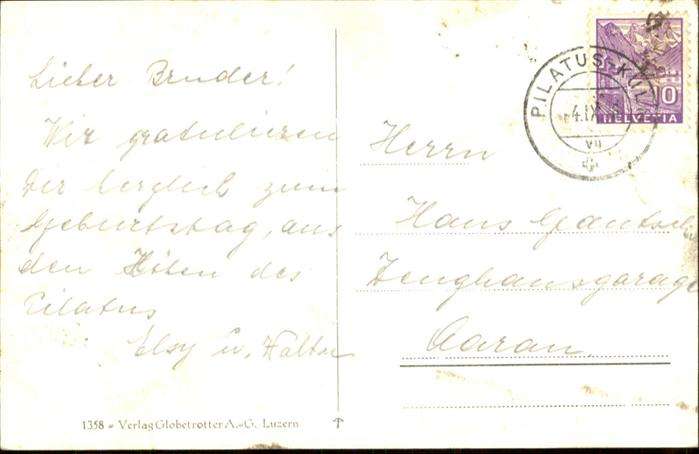 Lieber Bruder!
Wir gratulieren
Dir herzlich zum
Geburtstag, aus
den Höhen des
Pilatus
Elsy u. Walter
Herrn
Hans
Zeughausgarage
Aarau.
PILATUS-KULM
4.IX
VII
10
HELVETIA
1358 - Verlag Globetrotter A.-G. Luzern